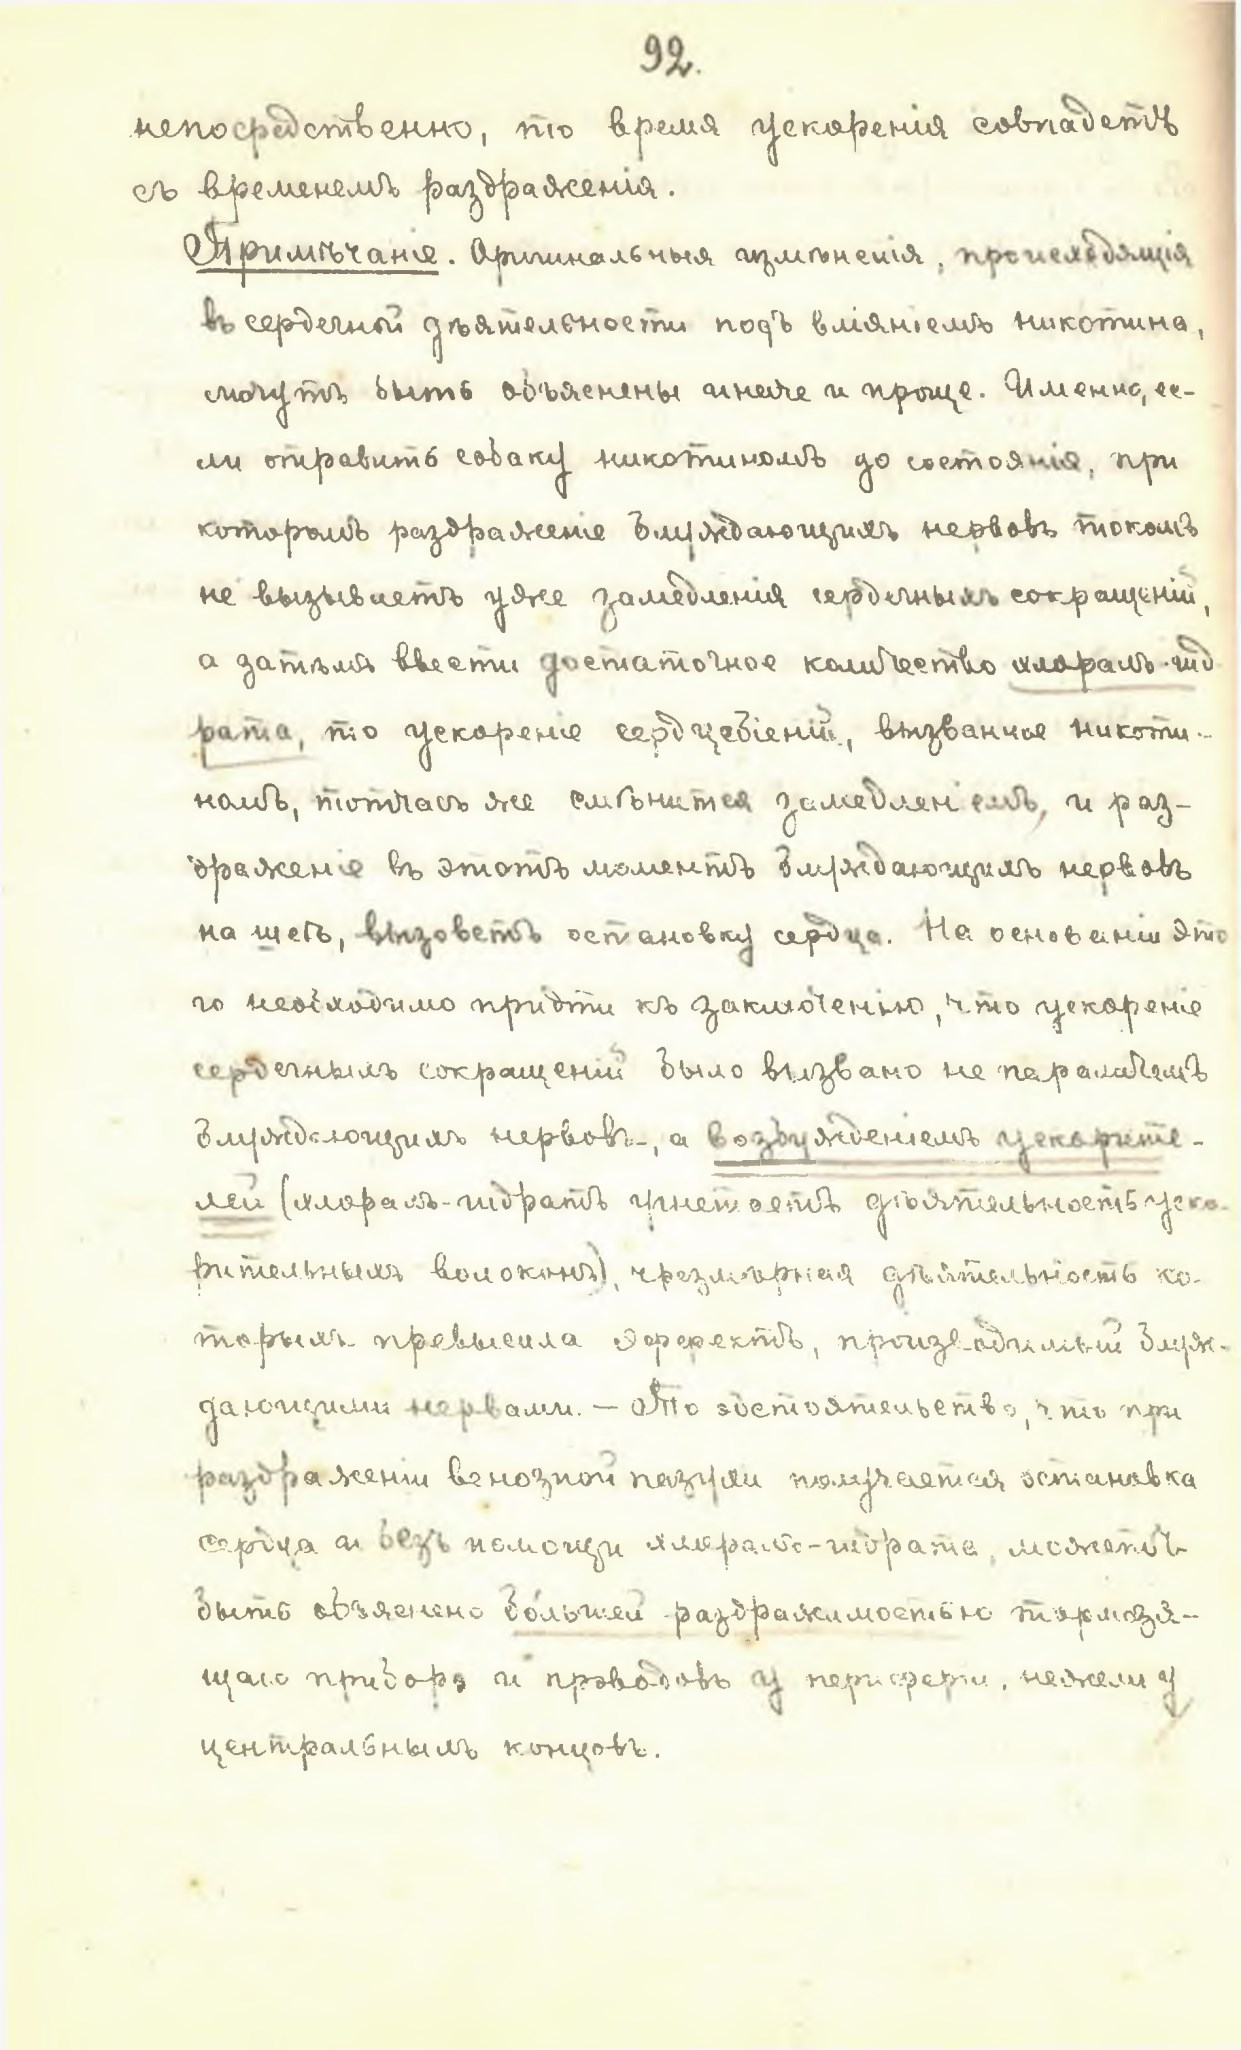 92.
непосредственно, то время ускоренія совпадетъ
съ временемъ раздраженія.
Примѣчаніе. Оригинальныя измѣненія, происходящія
въ сердечной дѣятельности подъ вліяніемъ никотина,
могутъ быть объяснены иначе и проще. Именно, ес-
ли отравить собаку никотиномъ до состоянія, при
которомъ раздраженіе блуждающихъ нервовъ токомъ
не вызываетъ уже замедленія сердечныхъ сокращеній,
а затѣмъ ввести достаточное количество хлоралъ-гид
рата, то ускореніе сердцебіеній, вызванное никоти-
номъ, тотчасъ же смѣнится замедленіемъ, и раз-
драженіе въ этотъ моментъ блуждающихъ нервовъ
на шеѣ, вызоветъ остановку сердца. На основаніи это
го необходимо придти къ заключенію, что ускореніе
сердечныхъ сокращеній было вызвано не параличемъ
блуждающихъ нервовъ, а возбужденіемъ ускорите-
лей (хлоралъ-гидратъ угнетаетъ дѣятельность уско-
рительныхъ волоконъ), чрезмѣрная дѣятельность ко-
торыхъ превысила эффектъ, производимый блуж-
дающими нервами. — То обстоятельство, что при
раздраженіи венозной пазухи получается остановка
сердца и безъ помощи хлоралъ-гидрата, можетъ
быть объяснено бо́льшей раздражимостью тормозя-
щаго прибора и проводовъ у периферіи, нежели у
центральныхъ концовъ.